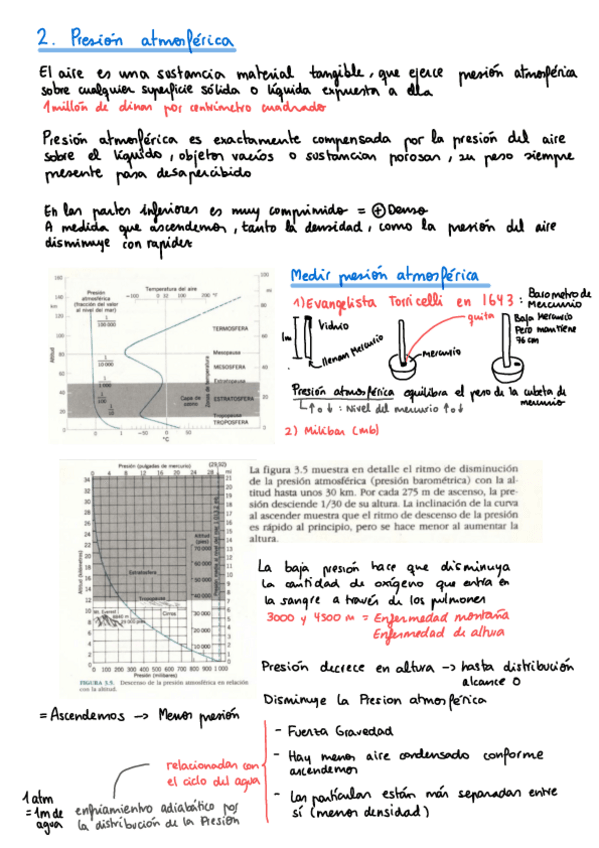 2. Presión atmosférica
El aire es una sustancia material tangible, que ejerce presión atmosférica
sobre cualquier superficie sólida o líquida expuesta a ella
1 millón de dinas por centímetro cuadrado
Presión atmosférica es exactamente compensada por la presión del aire
sobre el líquido, objetos vacíos o sustancias porosas, su peso siempre
presente pasa desapercibido
En las partes inferiores es muy comprimido = ⊕ Denso
A medida que ascendemos, tanto la densidad, como la presión del aire
disminuye con rapidez
Medir presión atmosférica
1) Evangelista Torricelli en 1643: Barometro de
mercurio
Vidrio
1m
llenam Mercurio
quita
mercurio
Baja Mercurio
Pero mantiene
76 cm
Presión atmosférica equilibra el peso de la cubeta de
mercurio
↑ o ↓ : Nivel del mercurio ↑ o ↓
2) Milibar (mb)
Presión
atmosférica
(fracción del valor
al nivel del mar)
Temperatura del aire
-100 0 32 100 200 °F
km
160
140
120
100
80
60
40
20
Altitud
1/100 000
1/10 000
1/1 000
1/100
1/10
TERMOSFERA
Mesopausa
MESOSFERA
Estratopausa
ESTRATOSFERA
Capa de
ozono
Tropopausa
TROPOSFERA
Zonas de temperatura
mi
100
80
60
40
20
0 1 -50 0 50
°C
Presión (pulgadas de mercurio) (29,92)
0 4 8 12 16 20 24 28 mi
Altitud (kilómetros)
34
32
30
28
26
24
22
20
18
16
14
12
10
8
6
4
2
0
Altitud
(pies)
70 000
60 000
50 000
40 000
30 000
20 000
10 000
Estratosfera
Tropopausa
Mt. Everest
8840 m
29 003 pies
Cirros
21
20
19
18
17
16
15
14
13
12
11
10
9
8
7
6
5
4
3
2
1
0
0 100 200 300 400 500 600 700 800 900 1 000
Presión (milibares)
FIGURA 3.5. Descenso de la presión atmosférica en relación
con la altitud.
La figura 3.5 muestra en detalle el ritmo de disminución
de la presión atmosférica (presión barométrica) con la al-
titud hasta unos 30 km. Por cada 275 m de ascenso, la pre-
sión desciende 1/30 de su altura. La inclinación de la curva
al ascender muestra que el ritmo de descenso de la presión
es rápido al principio, pero se hace menor al aumentar la
altura.
La baja presión hace que disminuya
la cantidad de oxígeno que entra en
la sangre a través de los pulmones
3000 y 4500 m = Enfermedad montaña
Enfermedad de altura
Presión decrece en altura -> hasta distribución
alcance 0
Disminuye la Presion atmosférica
= Ascendemos -> Menos presión
- Fuerza Gravedad
- Hay menos aire condensado conforme
ascendemos
- Las partículas están más separadas entre
sí (menos densidad)
relacionadas con
el ciclo del agua
1 atm
= 1m de
agua
enfriamiento adiabático por
la distribución de la Presión